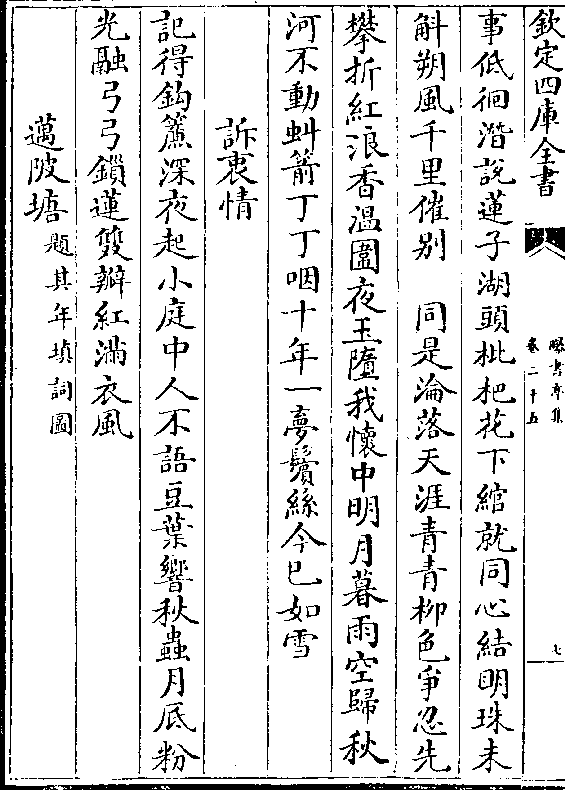 欽定四庫全書
曝書亭集
卷二十五
七
事低徊潛說蓮子湖頭枇杷花下綰就同心結明珠未
斛朔風千里催别　同是淪落天涯青青柳色爭忍先
攀折紅浪香溫圍夜玉墮我懷中明月暮雨空歸秋
河不動虯箭丁丁咽十年一夢鬢絲今已如雪
訴衷情
記得鈎簾深夜起小庭中人不語豆葉響秋蟲月底粉
光融弓弓鎖蓮雙瓣紅滿衣風
邁陂塘題其年填詞圖